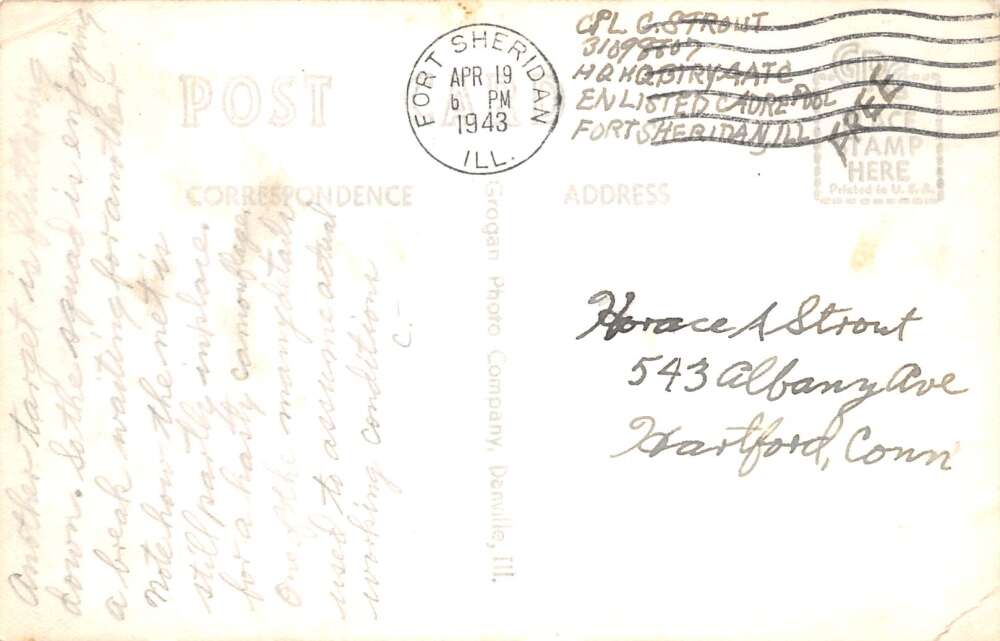 POST CA
CORRESPONDENCE
ADDRESS
FORT SHERIDAN
APR 19
6 PM
1943
ILL.
CPL G. STROUT
31098607
HQ HQ BTRY AATC
ENLISTED CADRE POOL
FORT SHERIDAN, ILL
FREE
PLACE
STAMP
HERE
Printed in U. S. A.
Grogan Photo Company, Danville, Ill.
Another target is shutting
down. So the squad is enjoying
a break waiting for another
Note how the net is
still partly in place.
for a hasty camouflage.
One of the many details
used to assume actual
working conditions
C.-
Horace A Strout
543 Albany Ave
Hartford, Conn